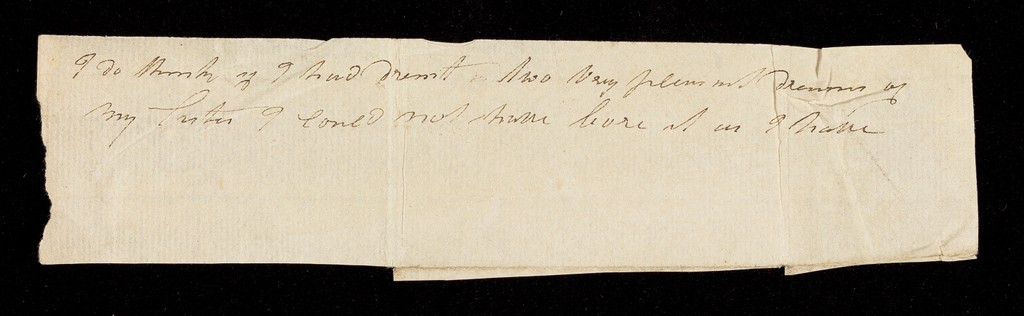 I do think if I had dremt two very pleasant dreams of
my Sister I could not have bore it as I have